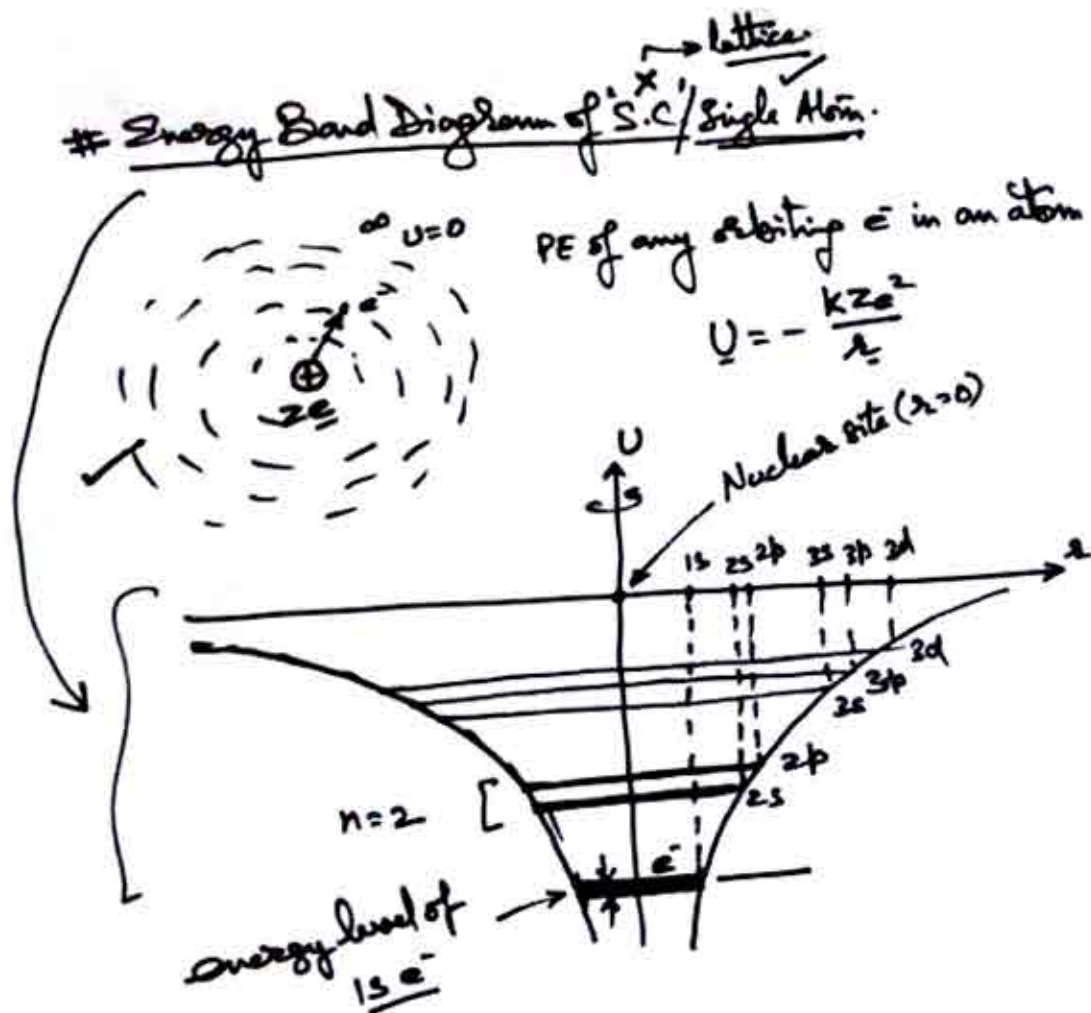 x → lattice.
# Energy Band Diagram of 'S.C'/Single Atom. ✓
∞ U=0
PE of any orbiting e⁻ in an atom
e⁻
U = - kZe²/r
+
Ze
Nuclear site (r=0)
U
1s 2s 2p 3s 3p 3d
r
3d
3p
3s
2p
2s
n=2
e⁻
energy level of
1s e⁻